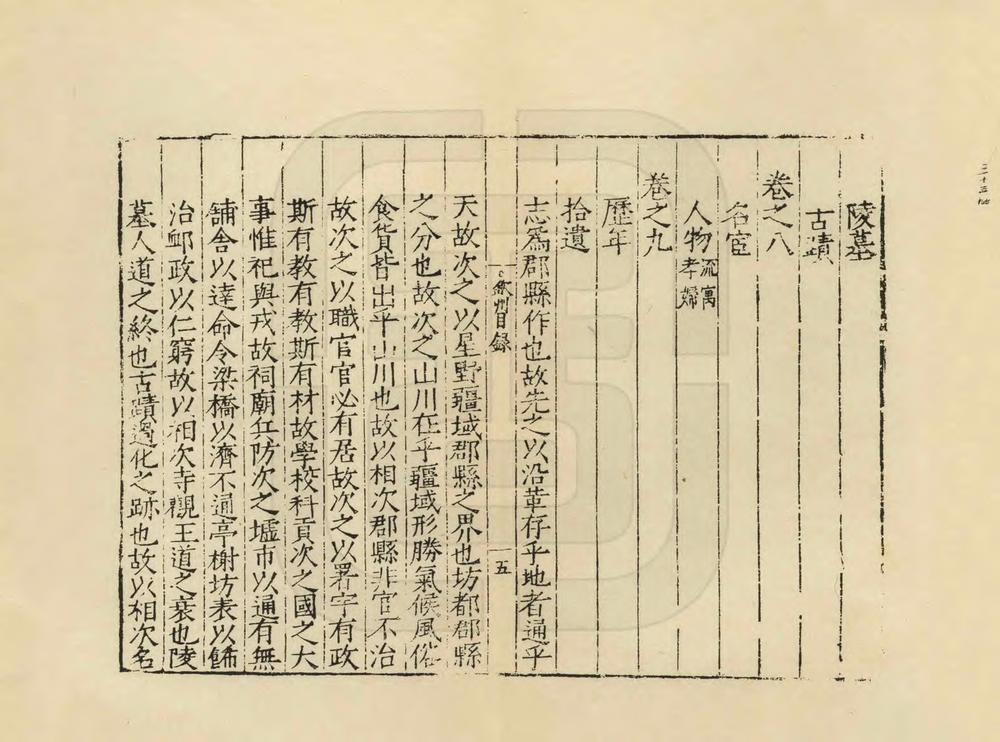 陵墓
古蹟
卷之八
名宦
人物 流寓 孝婦
卷之九
歷年
拾遺
志爲郡縣作也故先之以沿革存乎地者通乎
欽州目録 五
天故次之以星野疆域郡縣之界也坊都郡縣
之分也故次之山川在乎疆域形勝氣候風俗
食貨皆出乎山川也故以相次郡縣非官不治
故次之以職官官必有居故次之以署宇有政
斯有教有教斯有材故學校科貢次之國之大
事惟祀與戎故祠廟兵防次之墟市以通有無
舖舍以達命令梁橋以濟不通亭榭坊表以餙
治卹政以仁窮故以相次寺觀王道之衰也陵
墓人道之終也古蹟過化之跡也故以相次名